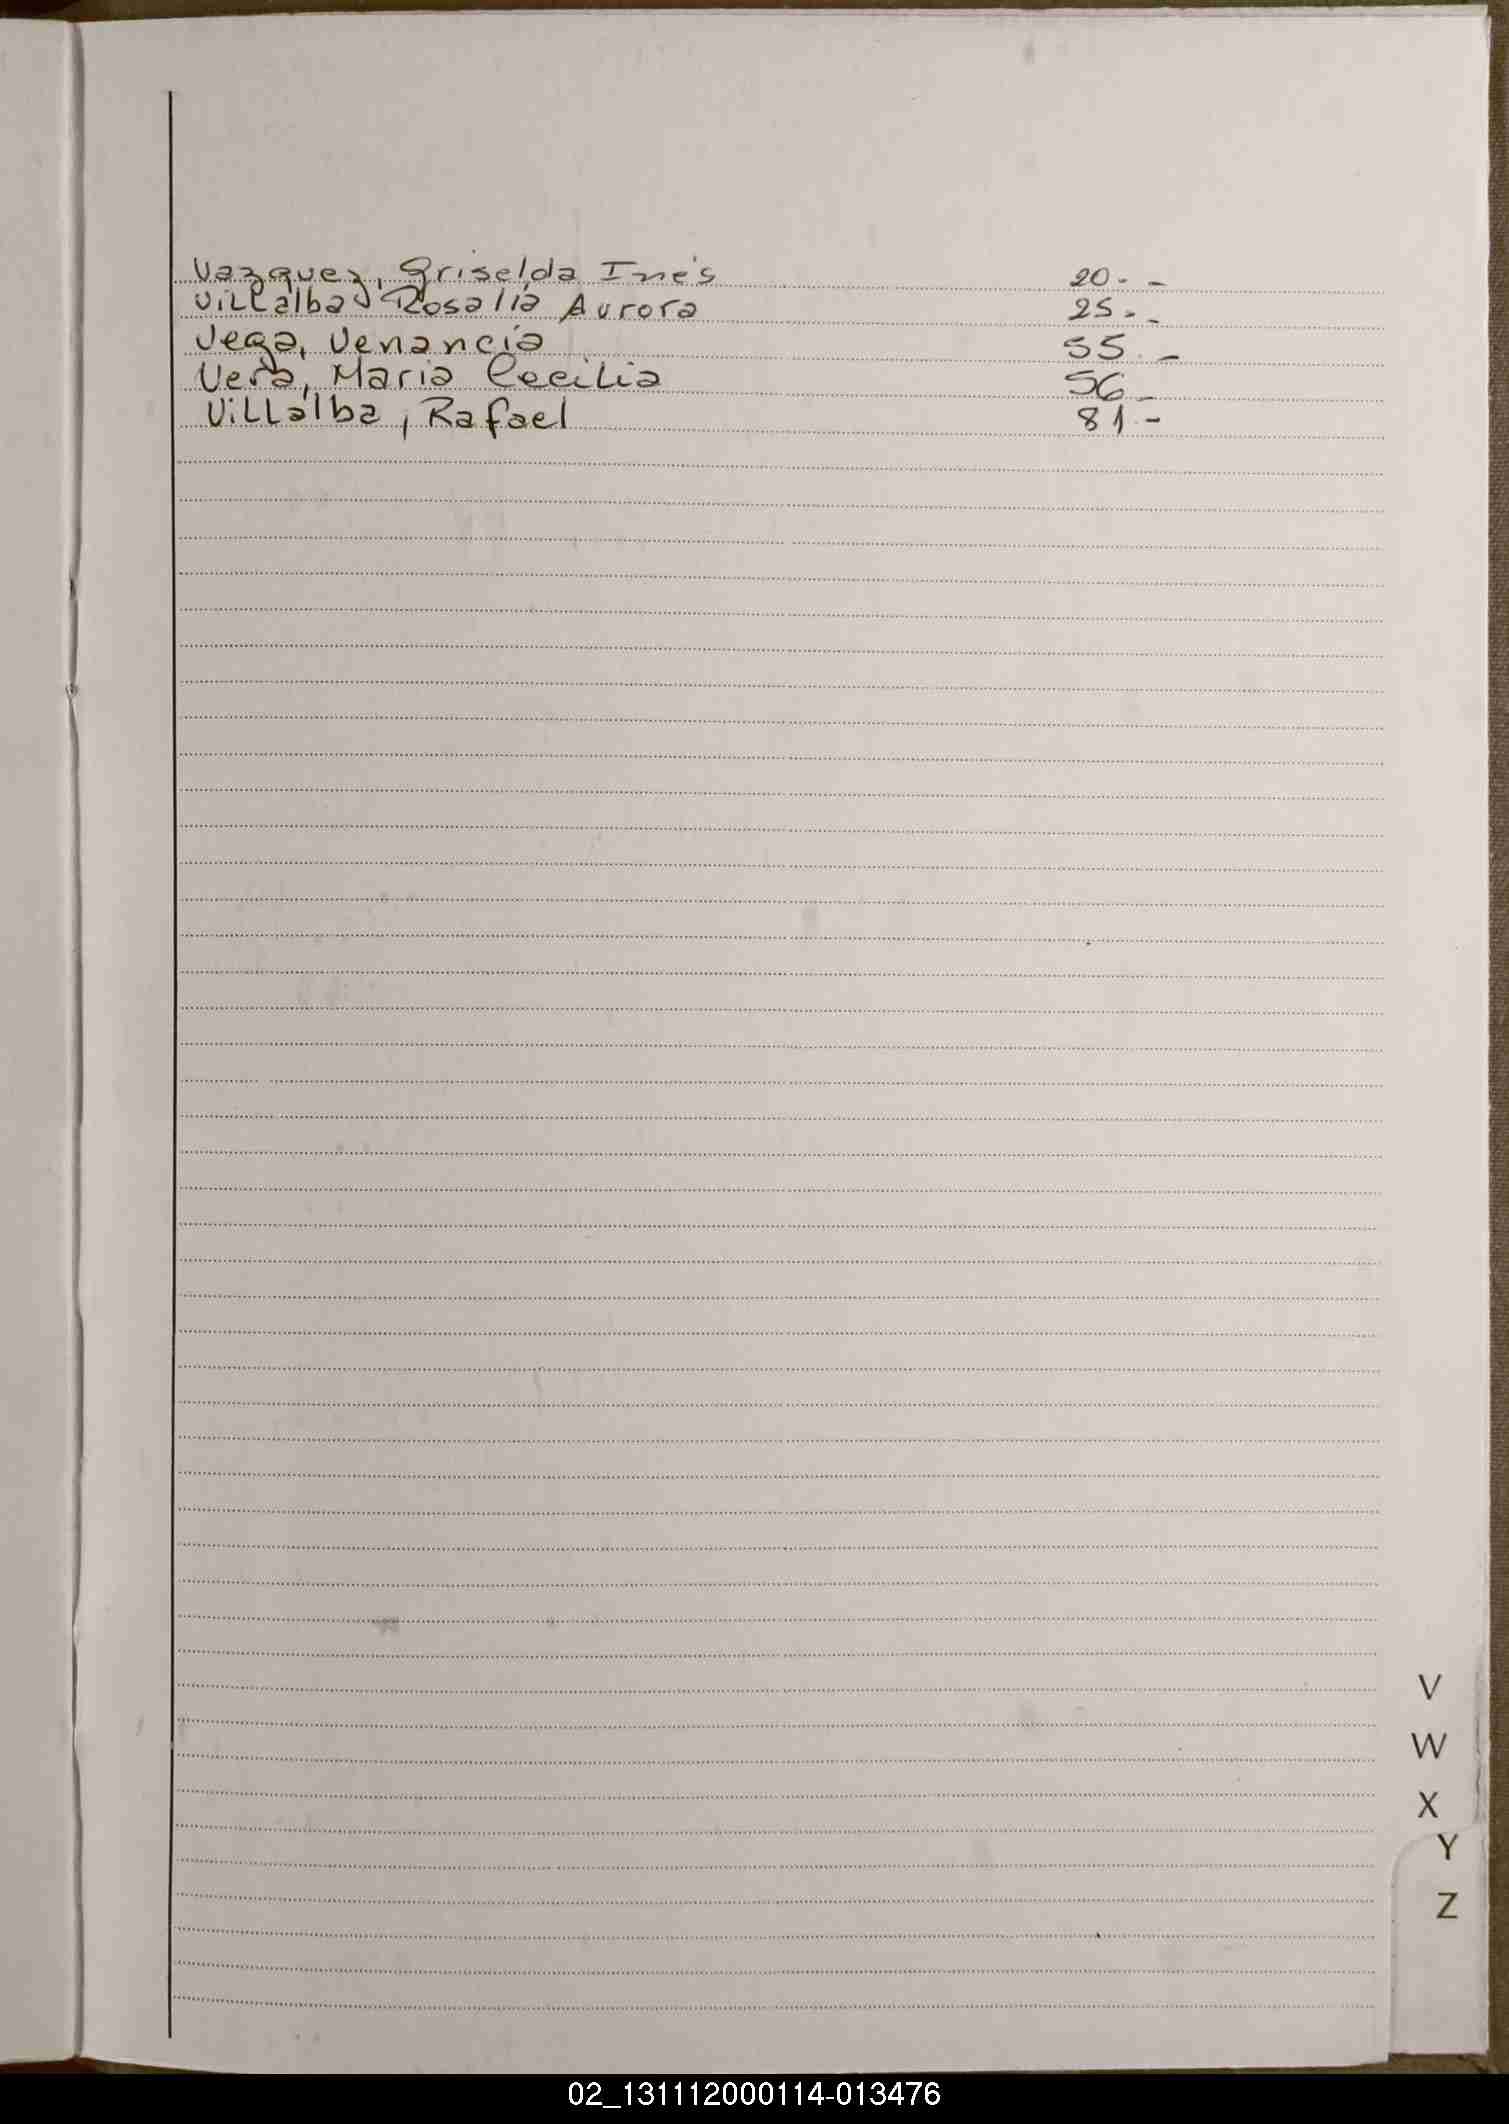 Vazquez, Griselda Inés 20.-
Villalba, Rosalía Aurora 25.-
Vega, Venancia 55.-
Vera, Maria Cecilia 56-
Villalba, Rafael 81.-
V
W
X
Y
Z
02_131112000114-013476